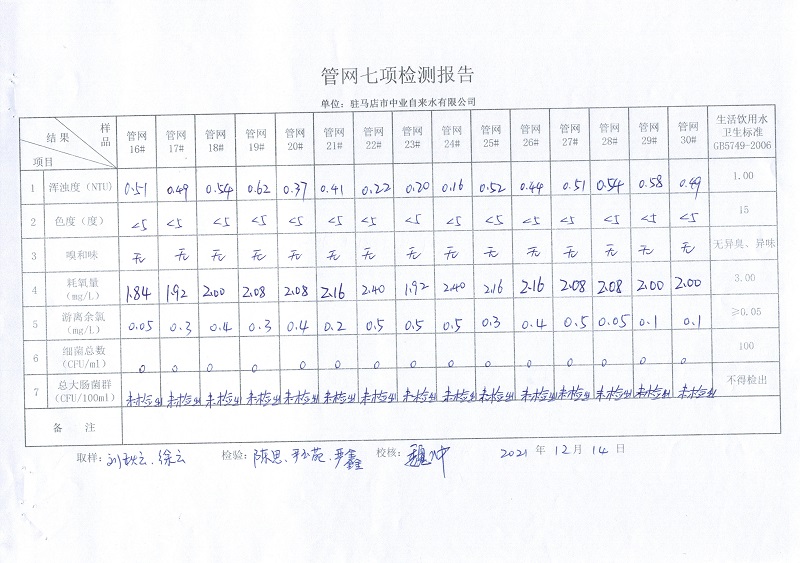 管网七项检测报告
单位：驻马店市中业自来水有限公司
结果 样品 项目 管网16# 管网17# 管网18# 管网19# 管网20# 管网21# 管网22# 管网23# 管网24# 管网25# 管网26# 管网27# 管网28# 管网29# 管网30# 生活饮用水卫生标准GB5749-2006
1 浑浊度（NTU） 0.51 0.49 0.54 0.62 0.37 0.41 0.22 0.20 0.16 0.52 0.44 0.51 0.54 0.58 0.49 1.00
2 色度（度） <5 <5 <5 <5 <5 <5 <5 <5 <5 <5 <5 <5 <5 <5 <5 15
3 嗅和味 无 无 无 无 无 无 无 无 无 无 无 无 无 无 无 无异臭、异味
4 耗氧量（mg/L） 1.84 1.92 2.00 2.08 2.08 2.16 2.40 1.92 2.40 2.16 2.16 2.08 2.08 2.00 2.00 3.00
5 游离余氯（mg/L） 0.05 0.3 0.4 0.3 0.4 0.2 0.5 0.5 0.5 0.3 0.4 0.5 0.05 0.1 0.1 ≥0.05
6 细菌总数（CFU/ml） 0 0 0 0 0 0 0 0 0 0 0 0 0 0 0 100
7 总大肠菌群（CFU/100ml） 未检出 未检出 未检出 未检出 未检出 未检出 未检出 未检出 未检出 未检出 未检出 未检出 未检出 未检出 未检出 不得检出
备 注
取样：刘秋云、徐云 检验：陈思、 校核： 2021 年 12 月 14 日